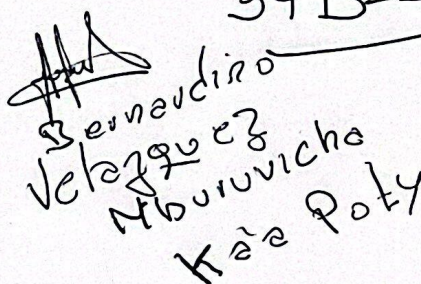 Bernardino
Velazquez
Mburuvicha
Kàa Poty